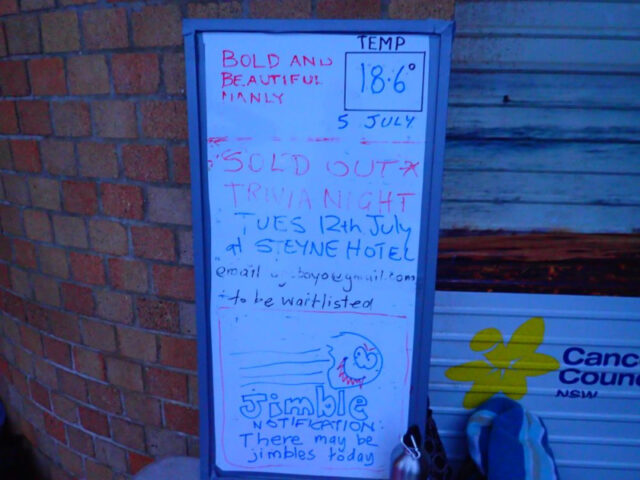 BOLD AND
BEAUTIFUL
MANLY
TEMP
18.6°
5 JULY
SOLD OUT
TRIVIA NIGHT
TUES 12th July
at STEYNE HOTEL
email
to be waitlisted
Jimble
NOTIFICATION:
There may be
jimbles today
Canc
Coun
NSW